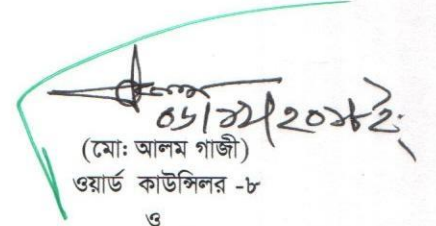 ০১/১২/২০১৮ইং
(মো: আলম গাজী)
ওয়ার্ড কাউন্সিলর -৮
ও